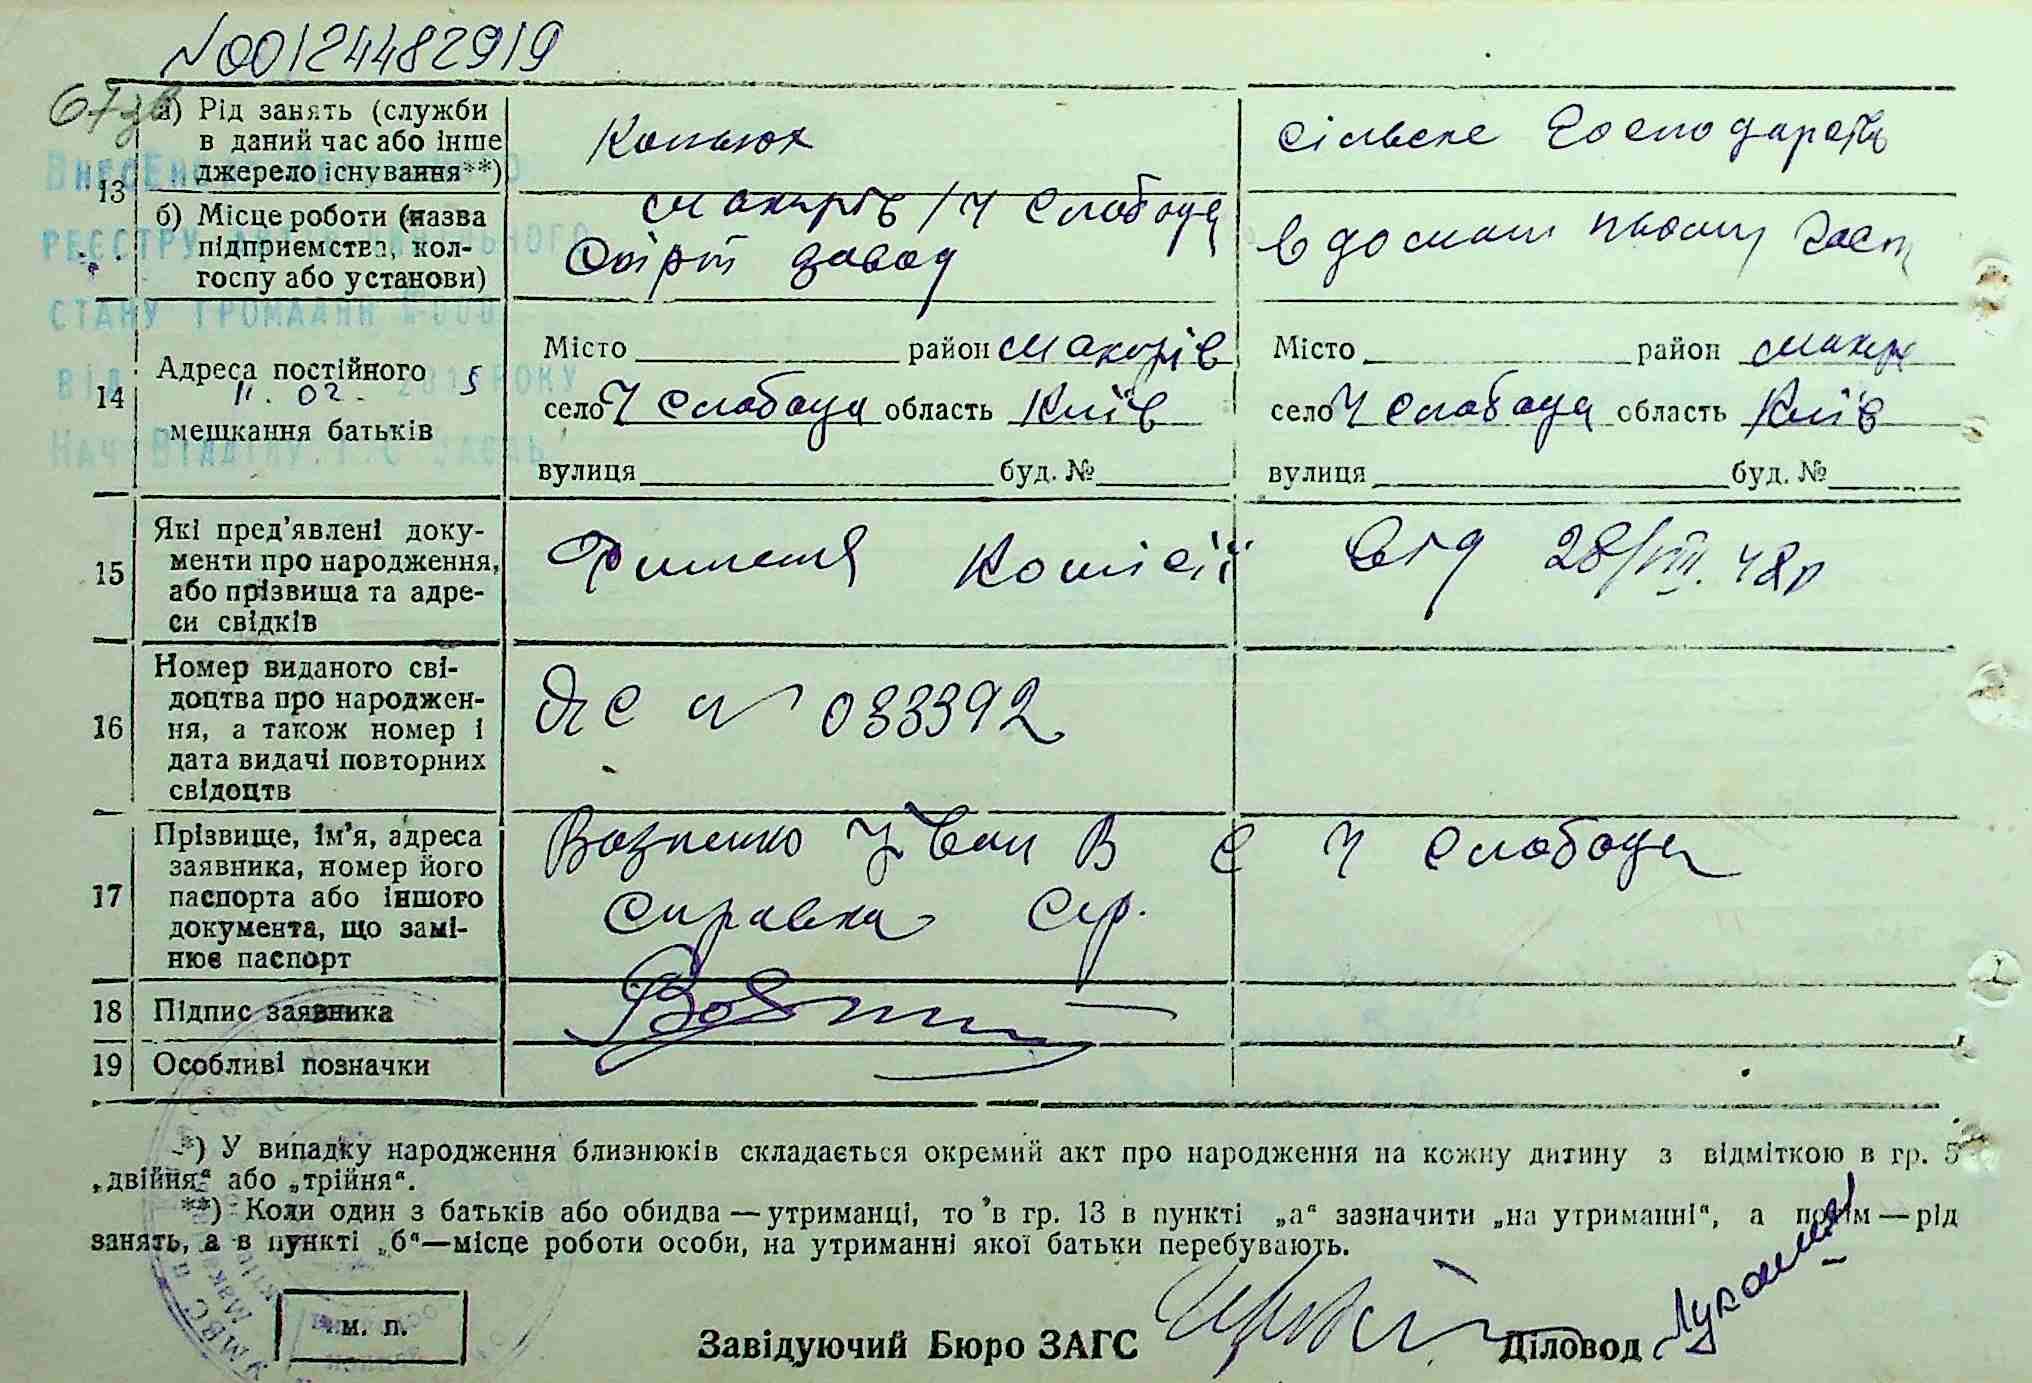 №00124482919
67зв
13
а) Рід занять (служби
в даний час або інше
джерело існування**)
Конюх
сільське господарств
б) Місце роботи (назва
підприємства, кол-
госпу або установи)
Макарів / Ч Слобода
Спірт завод
в домашньому госп
ВНЕСЕНО ДО ДЕРЖАВНОГО
РЕЄСТРУ АКТІВ ЦИВІЛЬНОГО
СТАНУ ГРОМАДЯН
ВІД 11. 02. 2015 РОКУ
14
Адреса постійного
мешкання батьків
Місто район Макарів
село Ч Слобода область Київ
вулиця буд. №
Місто район Макар
село Ч Слобода область Київ
вулиця буд. №
15
Які пред'явлені доку-
менти про народження,
або прізвища та адре-
си свідків
Рішення Комісії від 28/VIII. 48р
16
Номер виданого сві-
доцтва про народжен-
ня, а також номер і
дата видачі повторних
свідоцтв
№ 033392
17
Прізвище, ім'я, адреса
заявника, номер його
паспорта або іншого
документа, що замі-
нює паспорт
Возненко Іван В С Ч Слобода
справка с/р.
18 Підпис заявника
19 Особливі позначки
*) У випадку народження близнюків складається окремий акт про народження на кожну дитину з відміткою в гр. 5
„двійня“ або „трійня“.
**) Коли один з батьків або обидва — утриманці, то в гр. 13 в пункті „а“ зазначити „на утриманні“, а потім — рід
занять, а в пункті „б“—місце роботи особи, на утриманні якої батьки перебувають.
м. п.
Завідуючий Бюро ЗАГС Діловод